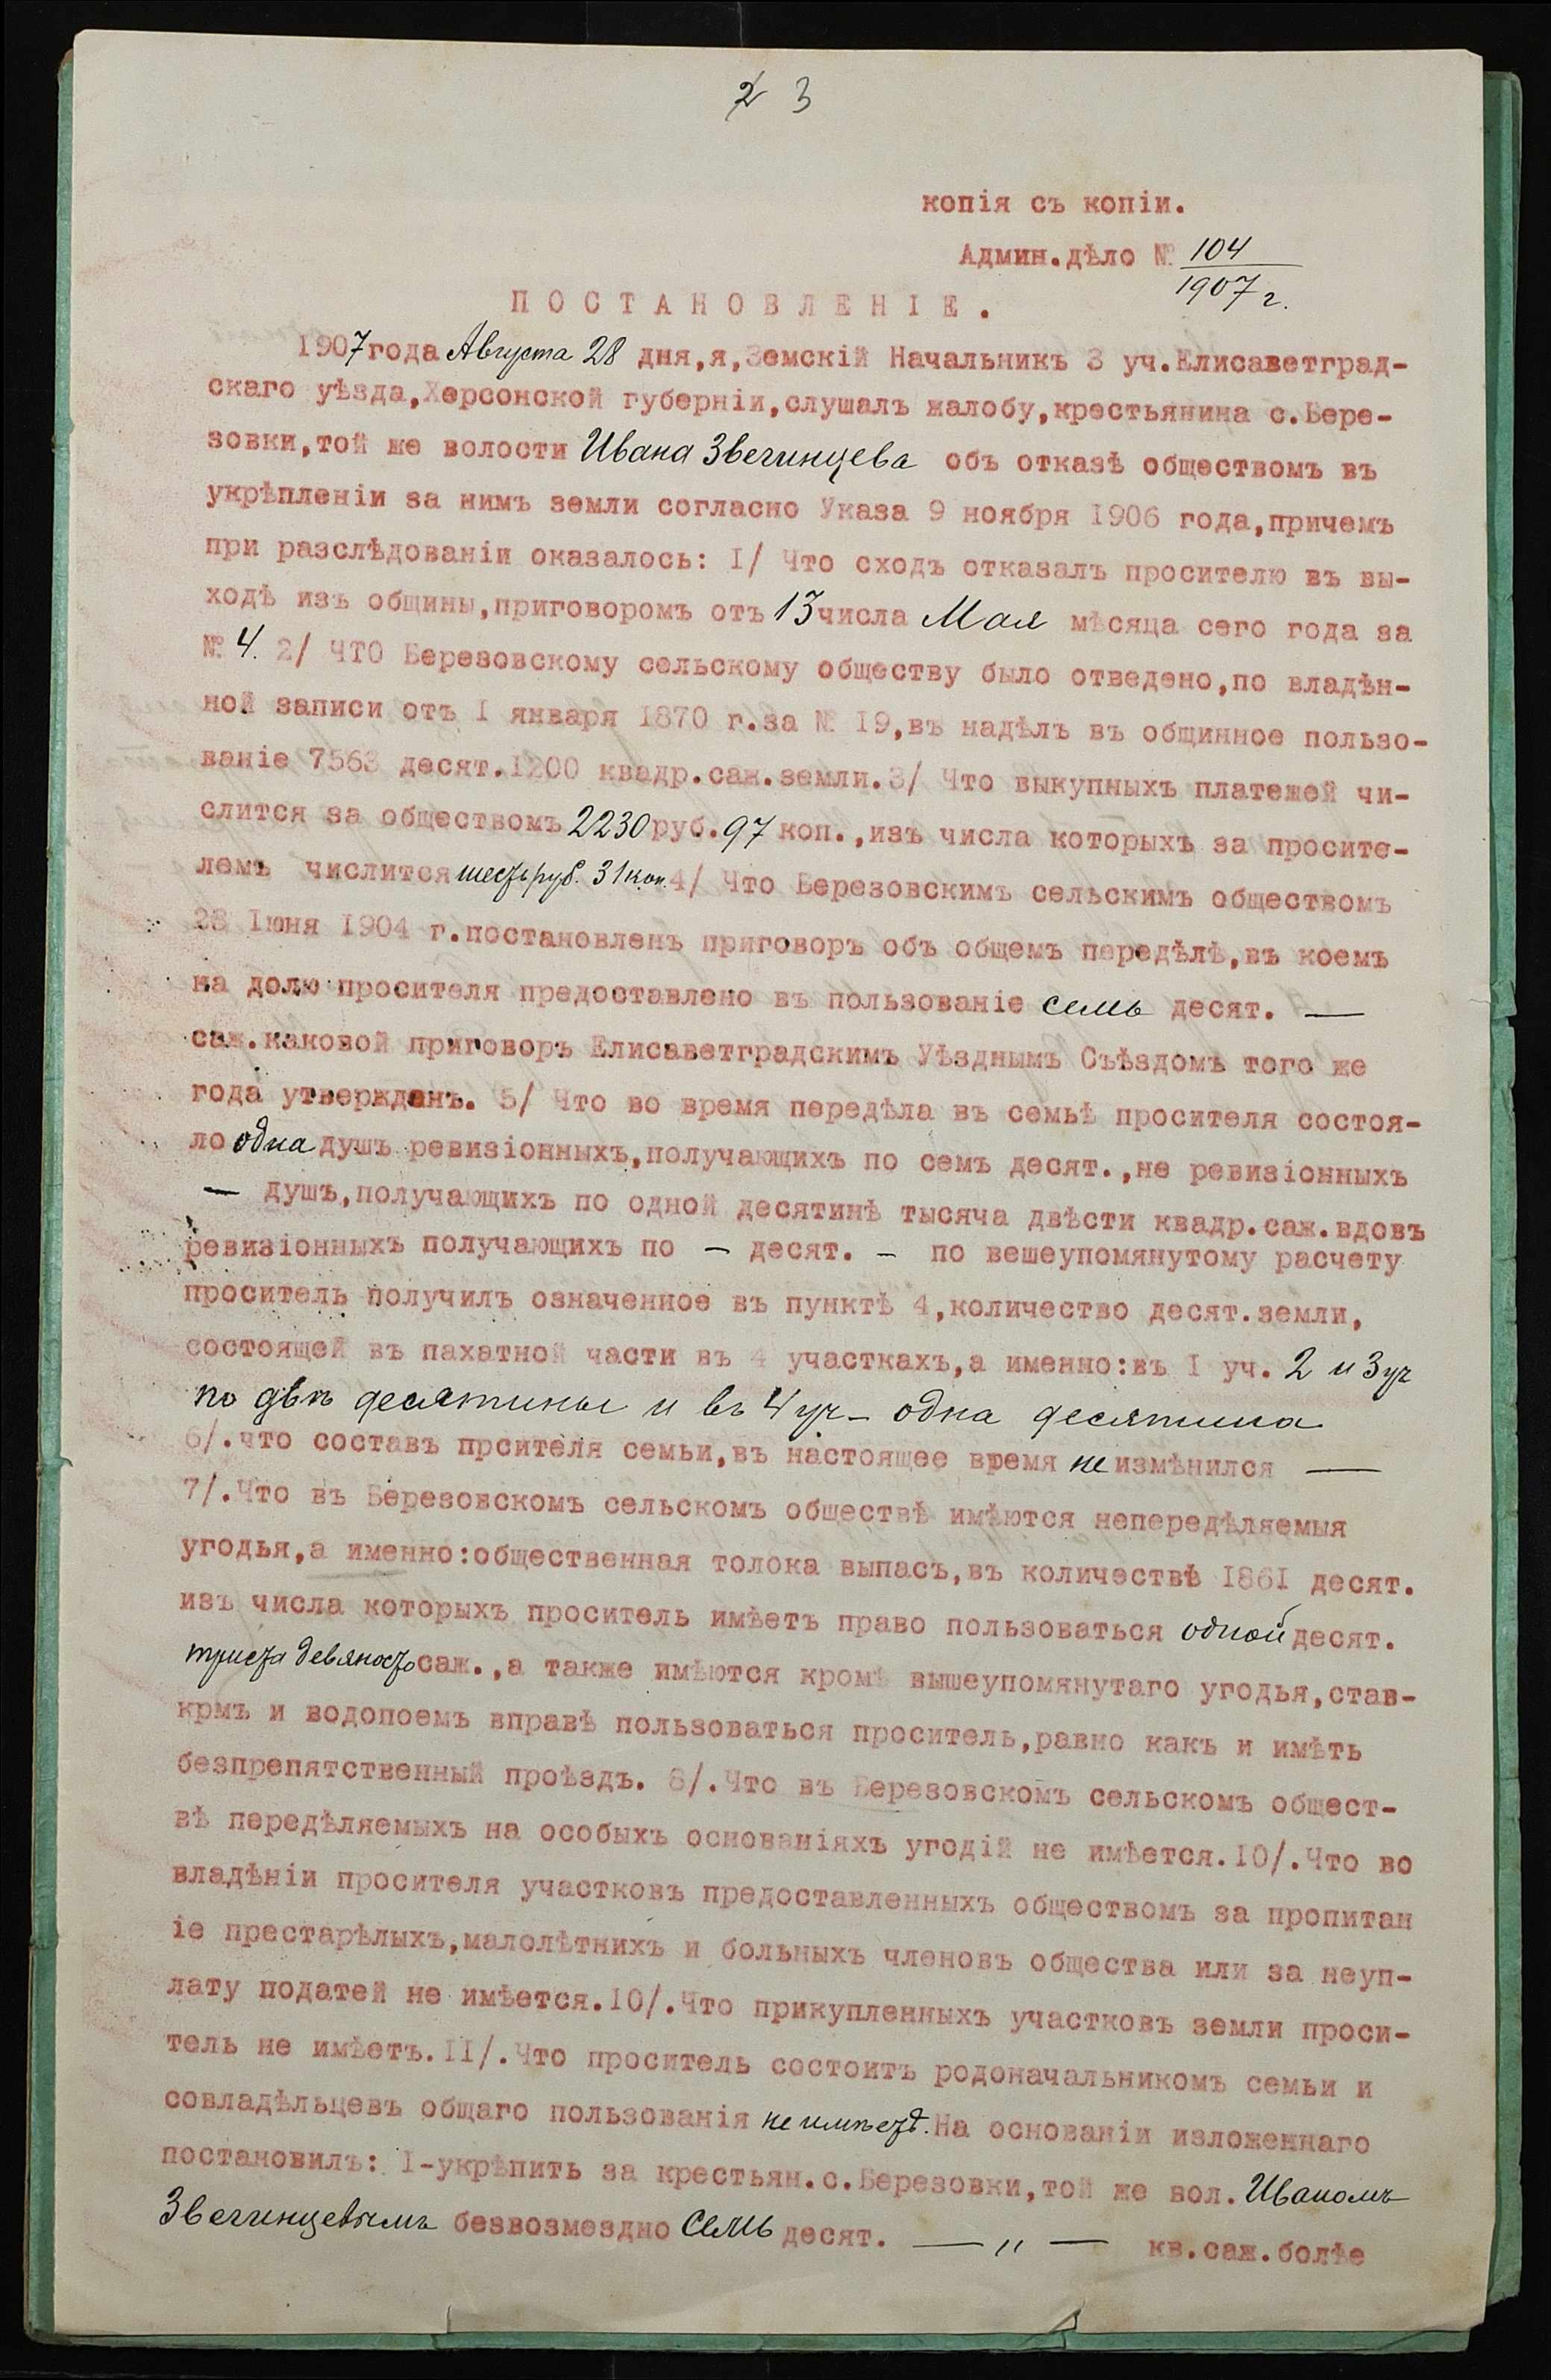 2 3
копія съ копіи.
Админ.дѣло № 104
1907 г.
ПОСТАНОВЛЕНІЕ.
1907 года Августа 28 дня,я,Земскій Начальникъ 3 уч.Елисаветград-
скаго уѣзда,Херсонской губерніи,слушалъ жалобу,крестьянина с.Бере-
зовки,той же волости Ивана Звегинцева объ отказѣ обществомъ въ
укрѣпленіи за нимъ земли согласно Указа 9 ноября 1906 года,причемъ
при разслѣдованіи оказалось: I/ Что сходъ отказалъ просителю въ вы-
ходѣ изъ общины,приговоромъ отъ 13 числа Мая мѣсяца сего года за
№ 4. 2/ ЧТО Березовскому сельскому обществу было отведено,по владѣн-
ной записи отъ I января 1870 г.за № I9,въ надѣлъ въ общинное пользо-
ваніе 7563 десят.1200 квадр.саж.земли.3/ Что выкупныхъ платежей чи-
слится за обществомъ 2230 руб.97 коп.,изъ числа которыхъ за просите-
лемъ числится шесть руб. 31 коп. 4/ Что Березовскимъ сельскимъ обществомъ
28 Іюня 1904 г.постановленъ приговоръ объ общемъ передѣлѣ,въ коемъ
на долю просителя предоставлено въ пользованіе семь десят. —
саж.каковой приговоръ Елисаветградскимъ Уѣзднымъ Съѣздомъ того же
года утвержданъ. 5/ Что во время передѣла въ семьѣ просителя состоя-
ло одна душъ ревизіонныхъ,получающихъ по семъ десят.,не ревизіонныхъ
— душъ,получающихъ по одной десятинѣ тысяча двѣсти квадр.саж.вдовъ
ревизіонныхъ получающихъ по — десят. — по вешеупомянутому расчету
проситель получилъ означенное въ пунктѣ 4,количество десят.земли,
состоящей въ пахатной части въ 4 участкахъ,а именно:въ I уч. 2 и 3 уч
по двѣ десятины и въ 4 уч — одна десятина
6/.что составъ прсителя семьи,въ настоящее время не измѣнился —
7/.Что въ Березовскомъ сельскомъ обществѣ имѣются непередѣляемыя
угодья,а именно:общественная толока выпасъ,въ количествѣ I86I десят.
изъ числа которыхъ проситель имѣетъ право пользоваться одной десят.
триста девяносто саж.,а также имѣются кромѣ вышеупомянутаго угодья,став-
крмъ и водопоемъ вправѣ пользоваться проситель,равно какъ и имѣть
безпрепятственный проѣздъ. 8/.Что въ Березовскомъ сельскомъ общест-
вѣ передѣляемыхъ на особыхъ основаніяхъ угодій не имѣется.I0/.Что во
владѣніи просителя участковъ предоставленныхъ обществомъ за пропитан
іе престарѣлыхъ,малолѣтнихъ и больныхъ членовъ общества или за неуп-
лату податей не имѣется.I0/.Что прикупленныхъ участковъ земли проси-
тель не имѣетъ.II/.Что проситель состоитъ родоначальникомъ семьи и
совладѣльцевъ общаго пользованія не имѣетъ. На основаніи изложеннаго
постановилъ: I-укрѣпить за крестьян.с.Березовки,той же вол. Иваномъ
Звегинцевымъ безвозмездно семь десят. — „ — кв.саж.болѣе